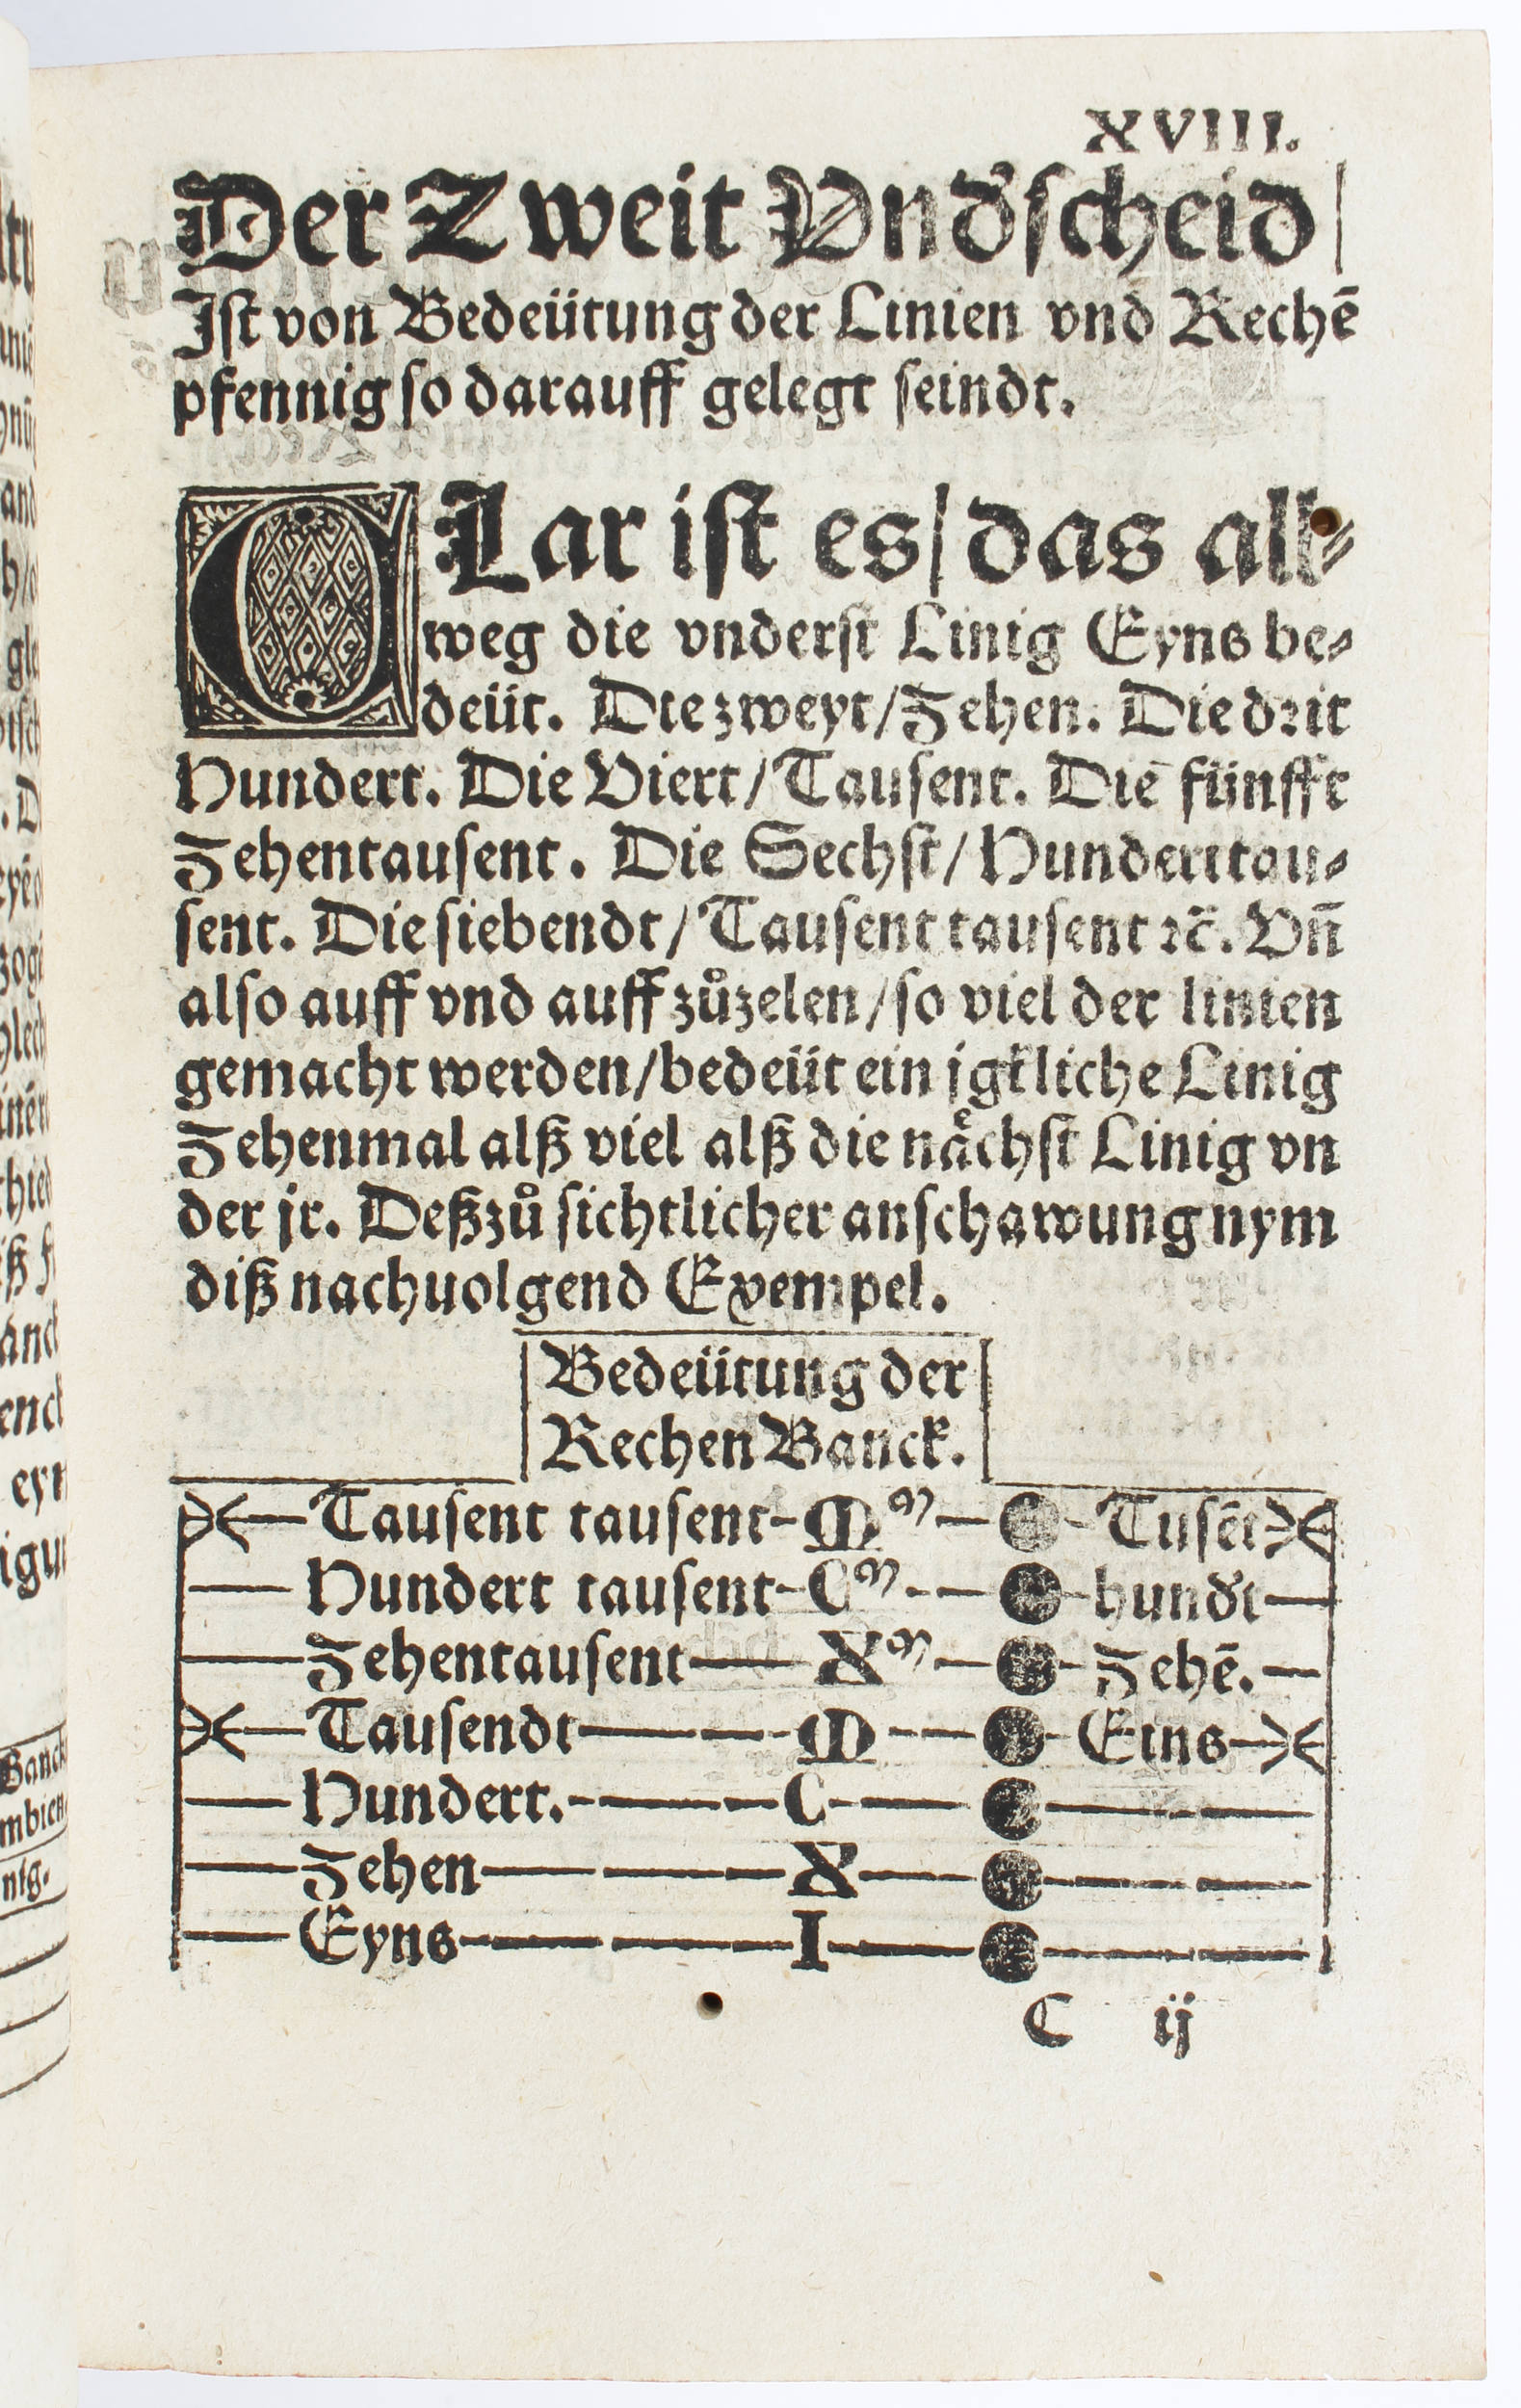 XVIII.
Der Zweit Vndʼſcheid/
Iſt von Bedeütung der Linien vnd Rechē
pfennig ſo darauff gelegt ſeindt.
CLar iſt es/das all⸗
weg die vnderſt Linig Eyns be⸗
deüt. Die zweyt/Zehen. Die drit
Hundert. Die Viert/Tauſent. Die fünfft
Zehentauſent. Die Sechſt/Hunderttau⸗
ſent. Die ſiebendt/Tauſent tauſent ꝛc̄. Vn̄
alſo auff vnd auff zůzelen/ſo viel der linien
gemacht werden/bedeüt ein jgkliche Linig
Zehenmal alß viel alß die naͤchſt Linig vn
der jr. Deßzů ſichtlicher anſchawung nym
diß nachuolgend Exempel.
Bedeütung der
Rechen Banck.
Tauſent tauſent M^m Tuſēt
Hundert tauſent C^m hundʼt
Zehentauſent X^m Zehē.
Tauſendt M Eins
Hundert. C
Zehen X
Eyns I
C ij